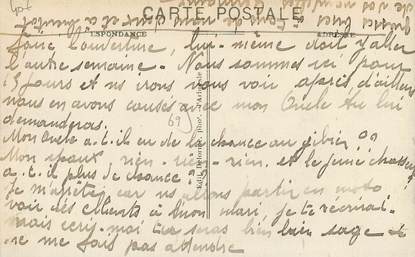 CARTE POSTALE
CORRESPONDANCE ADRESSE
faire l'ouverture, lui-même doit y aller
l'autre semaine. Nous sommes ici pour
15 jours et ns irons vous voir après, d'ailleurs
nous en avons causés avec mon Oncle tu lui
demanderas. 69
Mon Oncle a-t-il eu de la chance au gibier ??
Mon époux, rien - rien - rien, et le jeune chasseur
a-t-il plus de chance ??
Je m'arrête car ns allons partir en moto
voir des clients à mon mari, je te récrirai
mais écris-moi tu seras bien bien sage &
ne me fais pas attendre